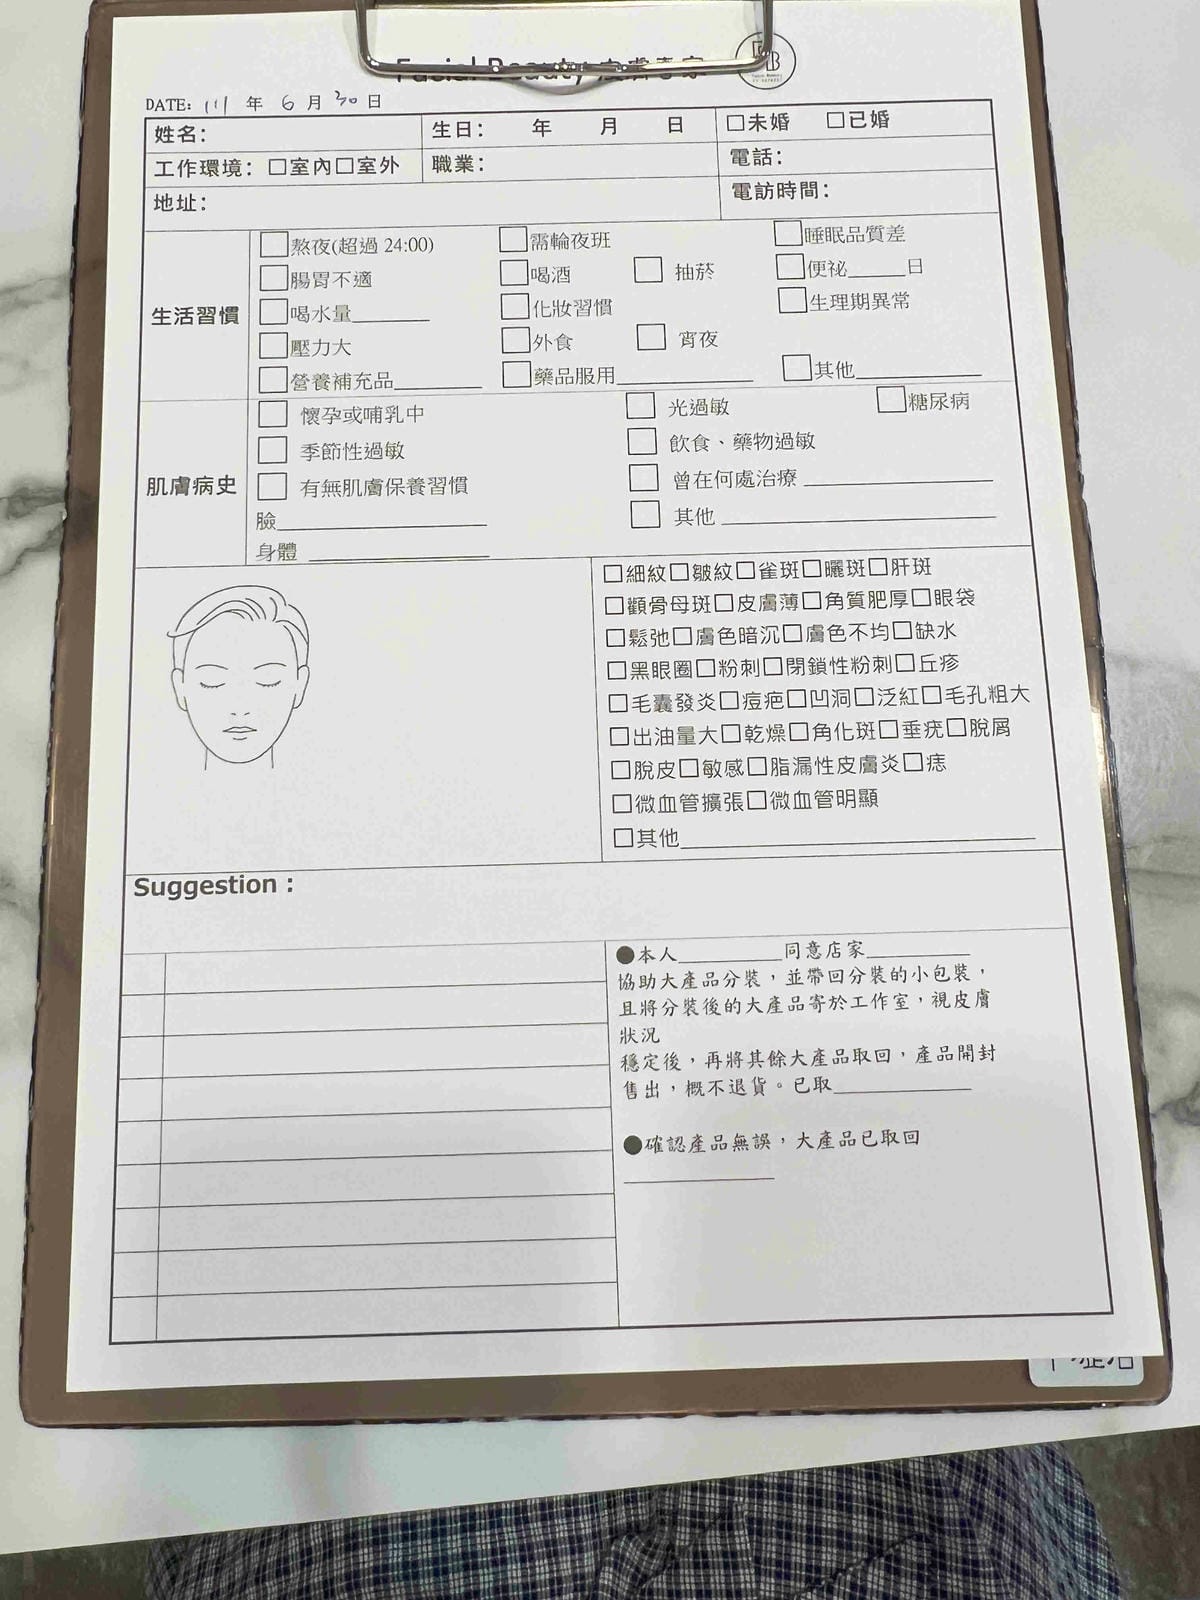 Facial Beauty
DATE: 111 年 6 月 30 日
姓名: 生日: 年 月 日 □未婚 □已婚
工作環境: □室內□室外 職業: 電話:
地址: 電訪時間:
生活習慣
□熬夜(超過 24:00) □需輪夜班 □睡眠品質差
□腸胃不適 □喝酒 □抽菸 □便祕______日
□喝水量________ □化妝習慣 □生理期異常
□壓力大 □外食 □宵夜
□營養補充品_________ □藥品服用______________ □其他_____________
肌膚病史
□懷孕或哺乳中 □光過敏 □糖尿病
□季節性過敏 □飲食、藥物過敏
□有無肌膚保養習慣 □曾在何處治療___________________
臉______________________ □其他____________________________
身體___________________
□細紋□皺紋□雀斑□曬斑□肝斑
□顴骨母斑□皮膚薄□角質肥厚□眼袋
□鬆弛□膚色暗沉□膚色不均□缺水
□黑眼圈□粉刺□閉鎖性粉刺□丘疹
□毛囊發炎□痘疤□凹洞□泛紅□毛孔粗大
□出油量大□乾燥□角化斑□垂疣□脫屑
□脫皮□敏感□脂漏性皮膚炎□痣
□微血管擴張□微血管明顯
□其他___________________________________
Suggestion：
●本人__________同意店家__________
協助大產品分裝，並帶回分裝的小包裝，
且將分裝後的大產品寄於工作室，視皮膚
狀況
穩定後，再將其餘大產品取回，產品開封
售出，概不退貨。已取_____________
●確認產品無誤，大產品已取回
______________